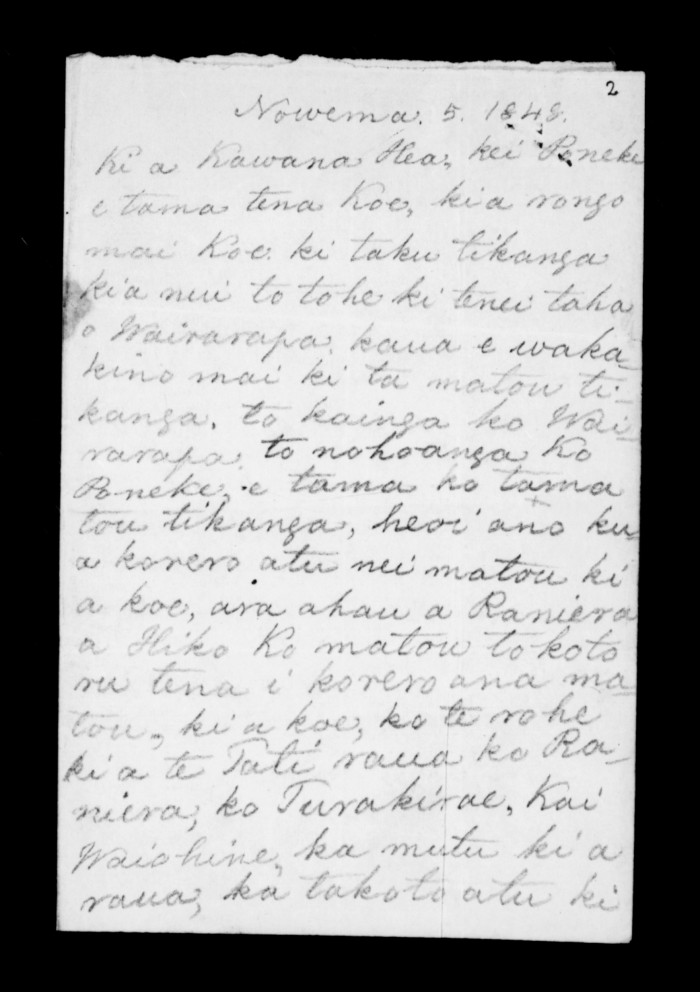 2
Nowema. 5. 1848.
Ki a Kawana Hea, kei Poneke
e tama tena Koe, kia rongo
mai Koe ki taku tikanga
kia nui to tohe ki tenei taha
o Wairarapa. kaua e waka-
kino mai ki ta matou ti-
kanga. to kainga ko Wai-
rarapa. to nohoanga Ko
Poneke, e tama ko tama
tou tikanga, heoi ano ku-
a korero atu nei matou ki
a koe, ara ahau a Raniera
a Hiko Ko matou tokoto
ru tena i korero ana ma-
tou, ki a koe, ko te rohe
ki a te Tati raua ko Ra-
niera, ko Turakirae, Kai
Waiohine, ka mutu ki a
raua, ka takoto atu ki